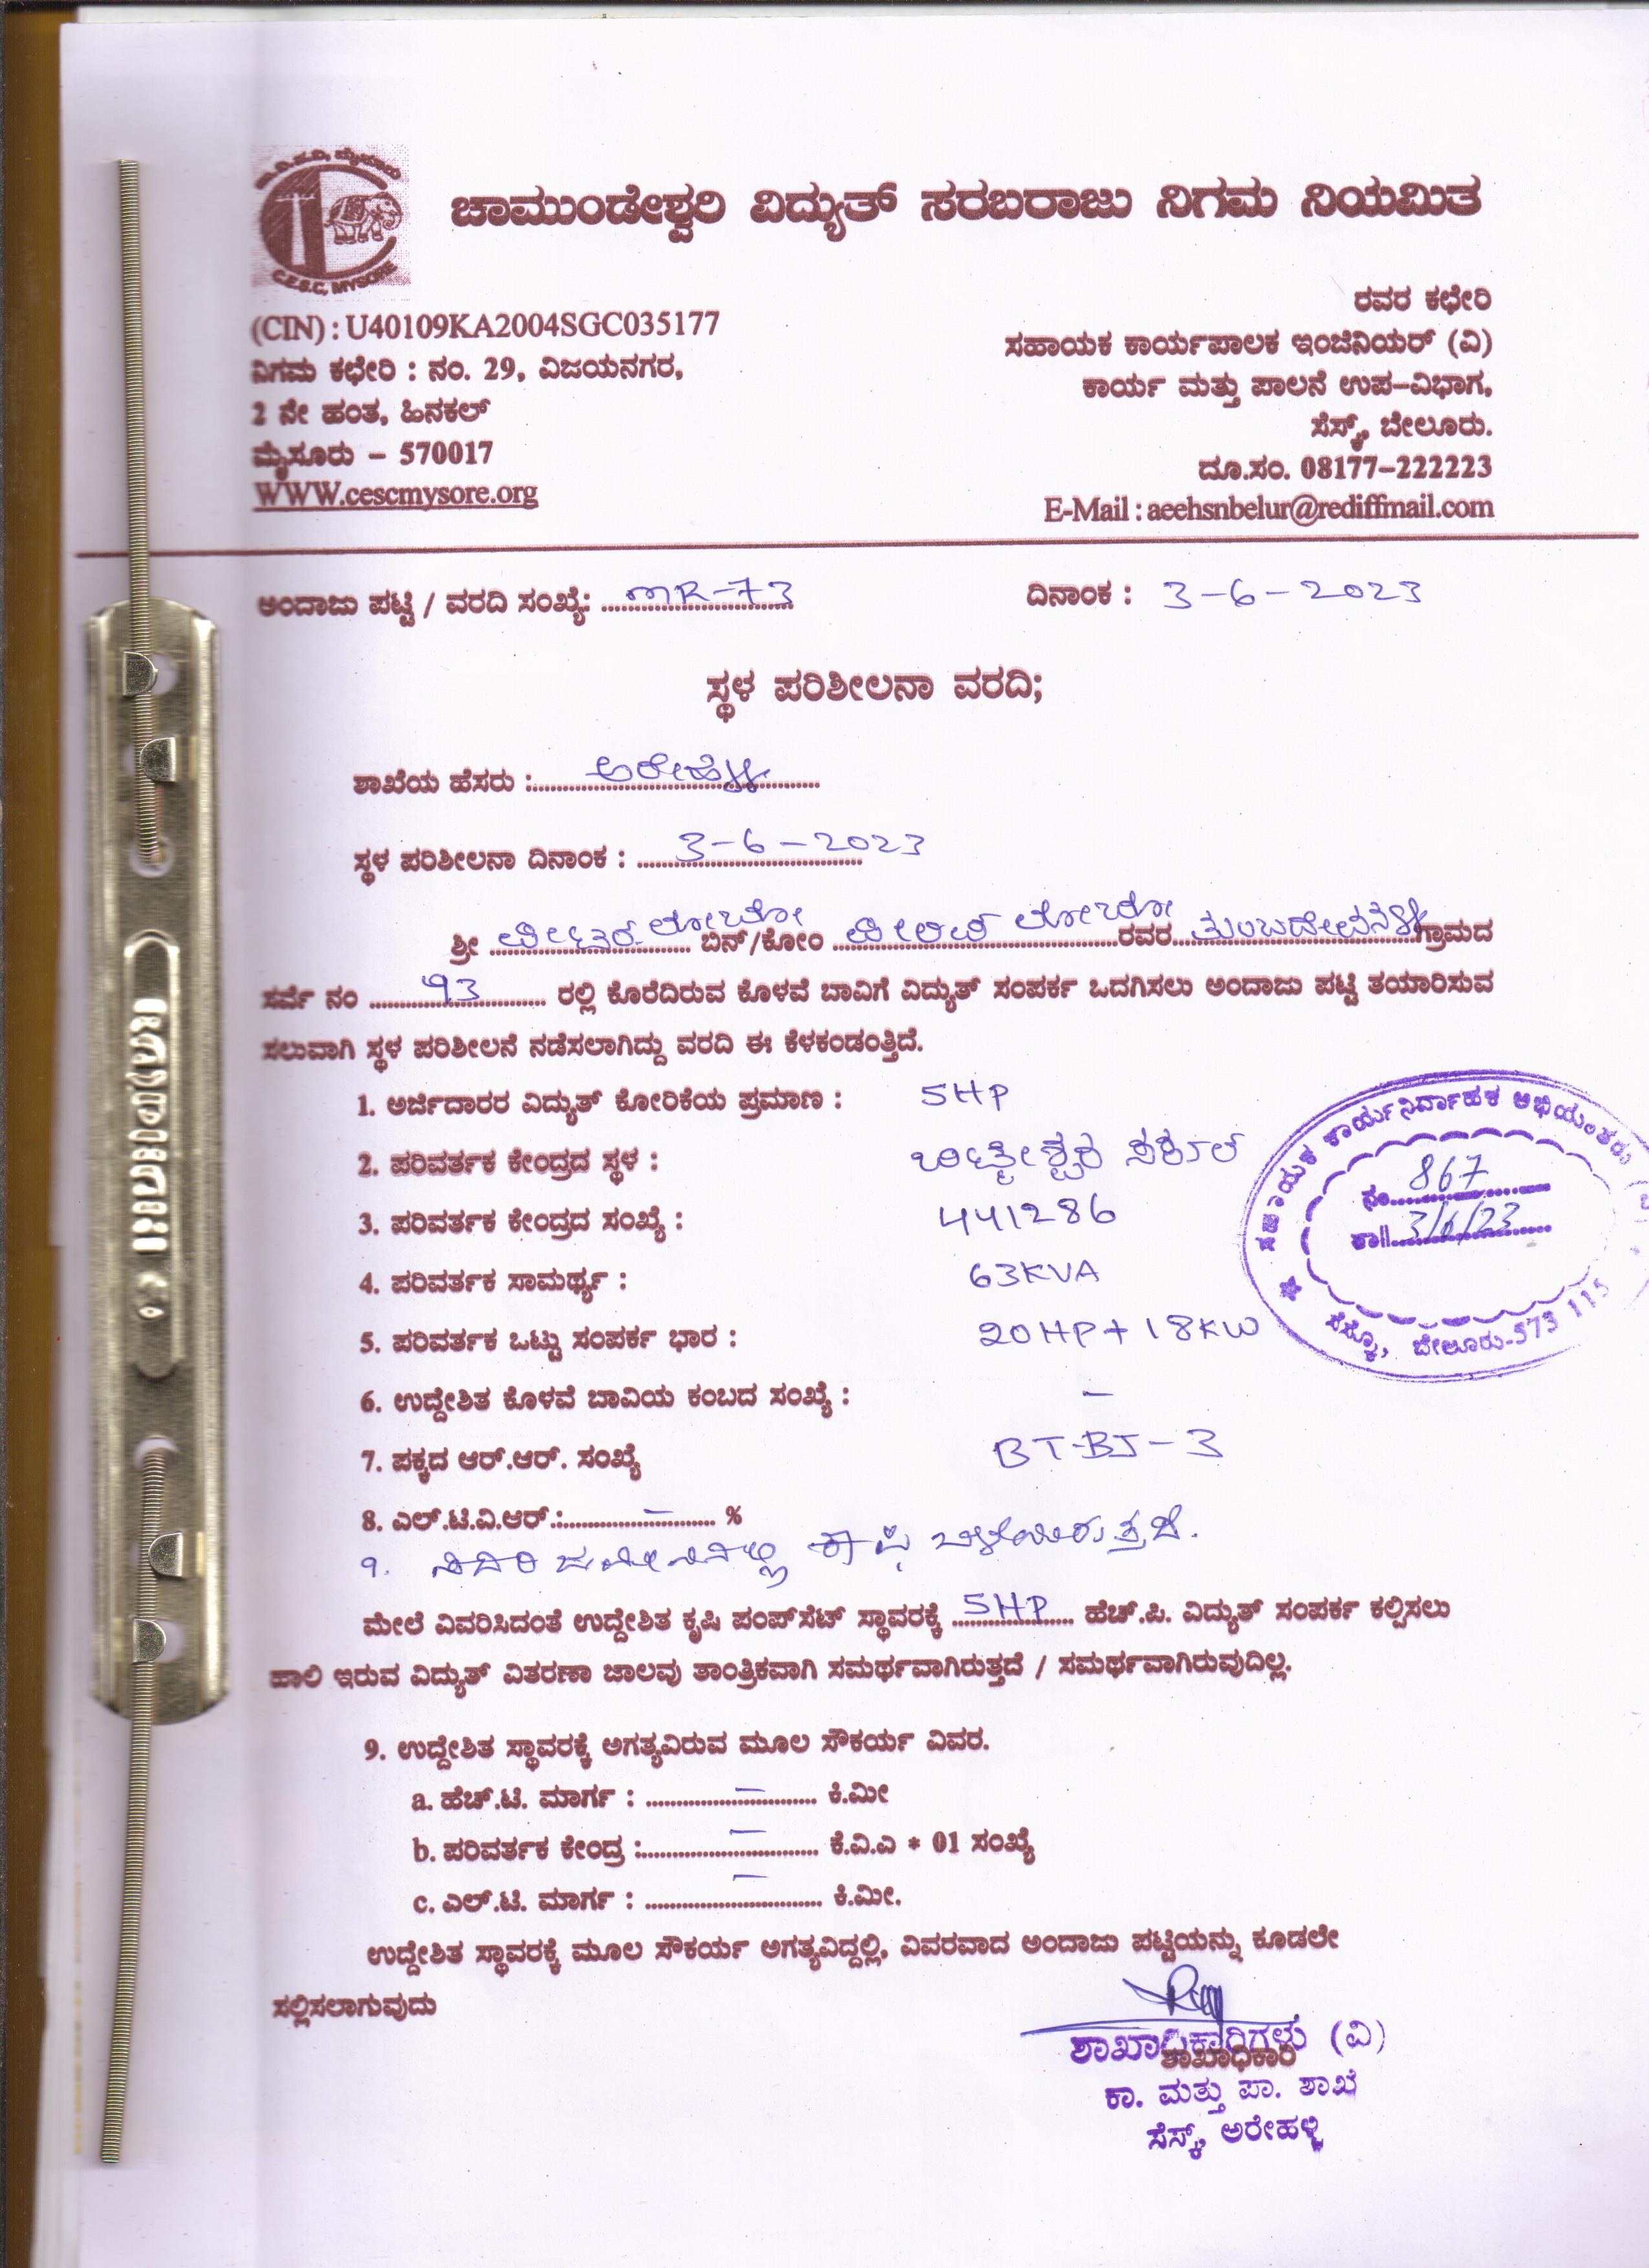 ಚಾಮುಂಡೇಶ್ವರಿ ವಿದ್ಯುತ್ ಸರಬರಾಜು ನಿಗಮ ನಿಯಮಿತ
C.E.S.C, MYSORE
(CIN) : U40109KA2004SGC035177
ನಿಗಮ ಕಛೇರಿ : ನಂ. 29, ವಿಜಯನಗರ,
2 ನೇ ಹಂತ, ಹಿನಕಲ್
ಮೈಸೂರು – 570017
WWW.cescmysore.org
ರವರ ಕಛೇರಿ
ಸಹಾಯಕ ಕಾರ್ಯಪಾಲಕ ಇಂಜಿನಿಯರ್ (ವಿ)
ಕಾರ್ಯ ಮತ್ತು ಪಾಲನೆ ಉಪ–ವಿಭಾಗ,
ಸೆಸ್ಕ್, ಬೇಲೂರು.
ದೂ.ಸಂ. 08177–222223
E-Mail : aeehsnbelur@rediffmail.com
ಅಂದಾಜು ಪಟ್ಟಿ / ವರದಿ ಸಂಖ್ಯೆ: MR-73 ದಿನಾಂಕ : 3-6-2023
ಸ್ಥಳ ಪರಿಶೀಲನಾ ವರದಿ;
ಶಾಖೆಯ ಹೆಸರು : ಅರೇಹಳ್ಳಿ
ಸ್ಥಳ ಪರಿಶೀಲನಾ ದಿನಾಂಕ : 3-6-2023
ಶ್ರೀ ಪೀಟರ್ ಲೋಬೋ ಬಿನ್/ಕೋಂ ಲೋಬೋ ರವರ ಗ್ರಾಮದ
ಸರ್ವೆ ನಂ 93 ರಲ್ಲಿ ಕೊರೆದಿರುವ ಕೊಳವೆ ಬಾವಿಗೆ ವಿದ್ಯುತ್ ಸಂಪರ್ಕ ಒದಗಿಸಲು ಅಂದಾಜು ಪಟ್ಟಿ ತಯಾರಿಸುವ
ಸಲುವಾಗಿ ಸ್ಥಳ ಪರಿಶೀಲನೆ ನಡೆಸಲಾಗಿದ್ದು ವರದಿ ಈ ಕೆಳಕಂಡಂತ್ತಿದೆ.
1. ಅರ್ಜಿದಾರರ ವಿದ್ಯುತ್ ಕೋರಿಕೆಯ ಪ್ರಮಾಣ : 5HP
2. ಪರಿವರ್ತಕ ಕೇಂದ್ರದ ಸ್ಥಳ : ಸರ್ಕಲ್
3. ಪರಿವರ್ತಕ ಕೇಂದ್ರದ ಸಂಖ್ಯೆ : 441286
4. ಪರಿವರ್ತಕ ಸಾಮರ್ಥ್ಯ : 63KVA
5. ಪರಿವರ್ತಕ ಒಟ್ಟು ಸಂಪರ್ಕ ಭಾರ : 20HP+18KW
6. ಉದ್ದೇಶಿತ ಕೊಳವೆ ಬಾವಿಯ ಕಂಬದ ಸಂಖ್ಯೆ : –
7. ಪಕ್ಕದ ಆರ್.ಆರ್. ಸಂಖ್ಯೆ BT-BJ-3
8. ಎಲ್.ಟಿ.ವಿ.ಆರ್.: – %
9. ಸದರಿ ಜಮೀನಿನಲ್ಲಿ ಕಾಫಿ ಬೆಳೆಯಿರುತ್ತದೆ.
ಸಹಾಯಕ ಕಾರ್ಯನಿರ್ವಾಹಕ ಅಭಿಯಂತರು
ನಂ. 867
ತಾ|| 3/6/23
ಸೆಸ್ಕ್, ಬೇಲೂರು-573 115
ಮೇಲೆ ವಿವರಿಸಿದಂತೆ ಉದ್ದೇಶಿತ ಕೃಷಿ ಪಂಪ್‌ಸೆಟ್ ಸ್ಥಾವರಕ್ಕೆ 5HP ಹೆಚ್.ಪಿ. ವಿದ್ಯುತ್ ಸಂಪರ್ಕ ಕಲ್ಪಿಸಲು
ಹಾಲಿ ಇರುವ ವಿದ್ಯುತ್ ವಿತರಣಾ ಜಾಲವು ತಾಂತ್ರಿಕವಾಗಿ ಸಮರ್ಥವಾಗಿರುತ್ತದೆ / ಸಮರ್ಥವಾಗಿರುವುದಿಲ್ಲ.
9. ಉದ್ದೇಶಿತ ಸ್ಥಾವರಕ್ಕೆ ಅಗತ್ಯವಿರುವ ಮೂಲ ಸೌಕರ್ಯ ವಿವರ.
a. ಹೆಚ್.ಟಿ. ಮಾರ್ಗ : – ಕಿ.ಮೀ
b. ಪರಿವರ್ತಕ ಕೇಂದ್ರ : – ಕೆ.ವಿ.ಎ * 01 ಸಂಖ್ಯೆ
c. ಎಲ್.ಟಿ. ಮಾರ್ಗ : – ಕಿ.ಮೀ.
ಉದ್ದೇಶಿತ ಸ್ಥಾವರಕ್ಕೆ ಮೂಲ ಸೌಕರ್ಯ ಅಗತ್ಯವಿದ್ದಲ್ಲಿ, ವಿವರವಾದ ಅಂದಾಜು ಪಟ್ಟಿಯನ್ನು ಕೂಡಲೇ
ಸಲ್ಲಿಸಲಾಗುವುದು
ಶಾಖಾಧಿಕಾರಿಗಳು (ವಿ)
ಶಾಖಾಧಿಕಾರಿ
ಕಾ. ಮತ್ತು ಪಾ. ಶಾಖೆ
ಸೆಸ್ಕ್, ಅರೇಹಳ್ಳಿ